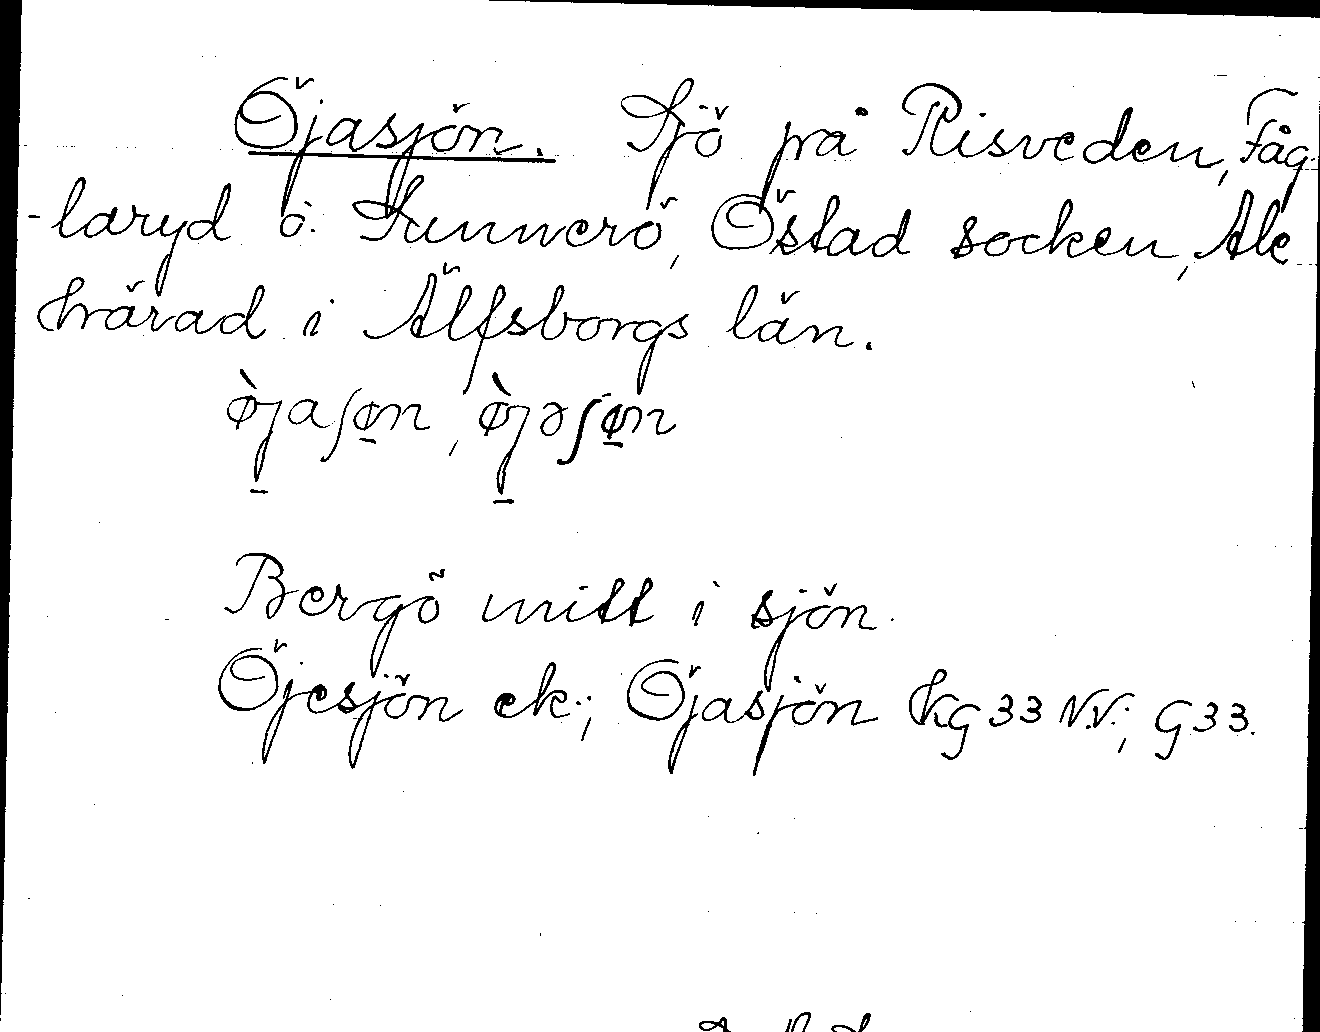 Öjasjön. Sjö på Risveden, Fåg-
-laryd o. Kunnerö, Östad socken, Ale
härad i Älfsborgs län.
ø̀jaʃøn, ø̀jəʃøn
Bergö mitt i sjön.
Öjesjön ek.; Öjasjön KG 33 N.V.; G 33.